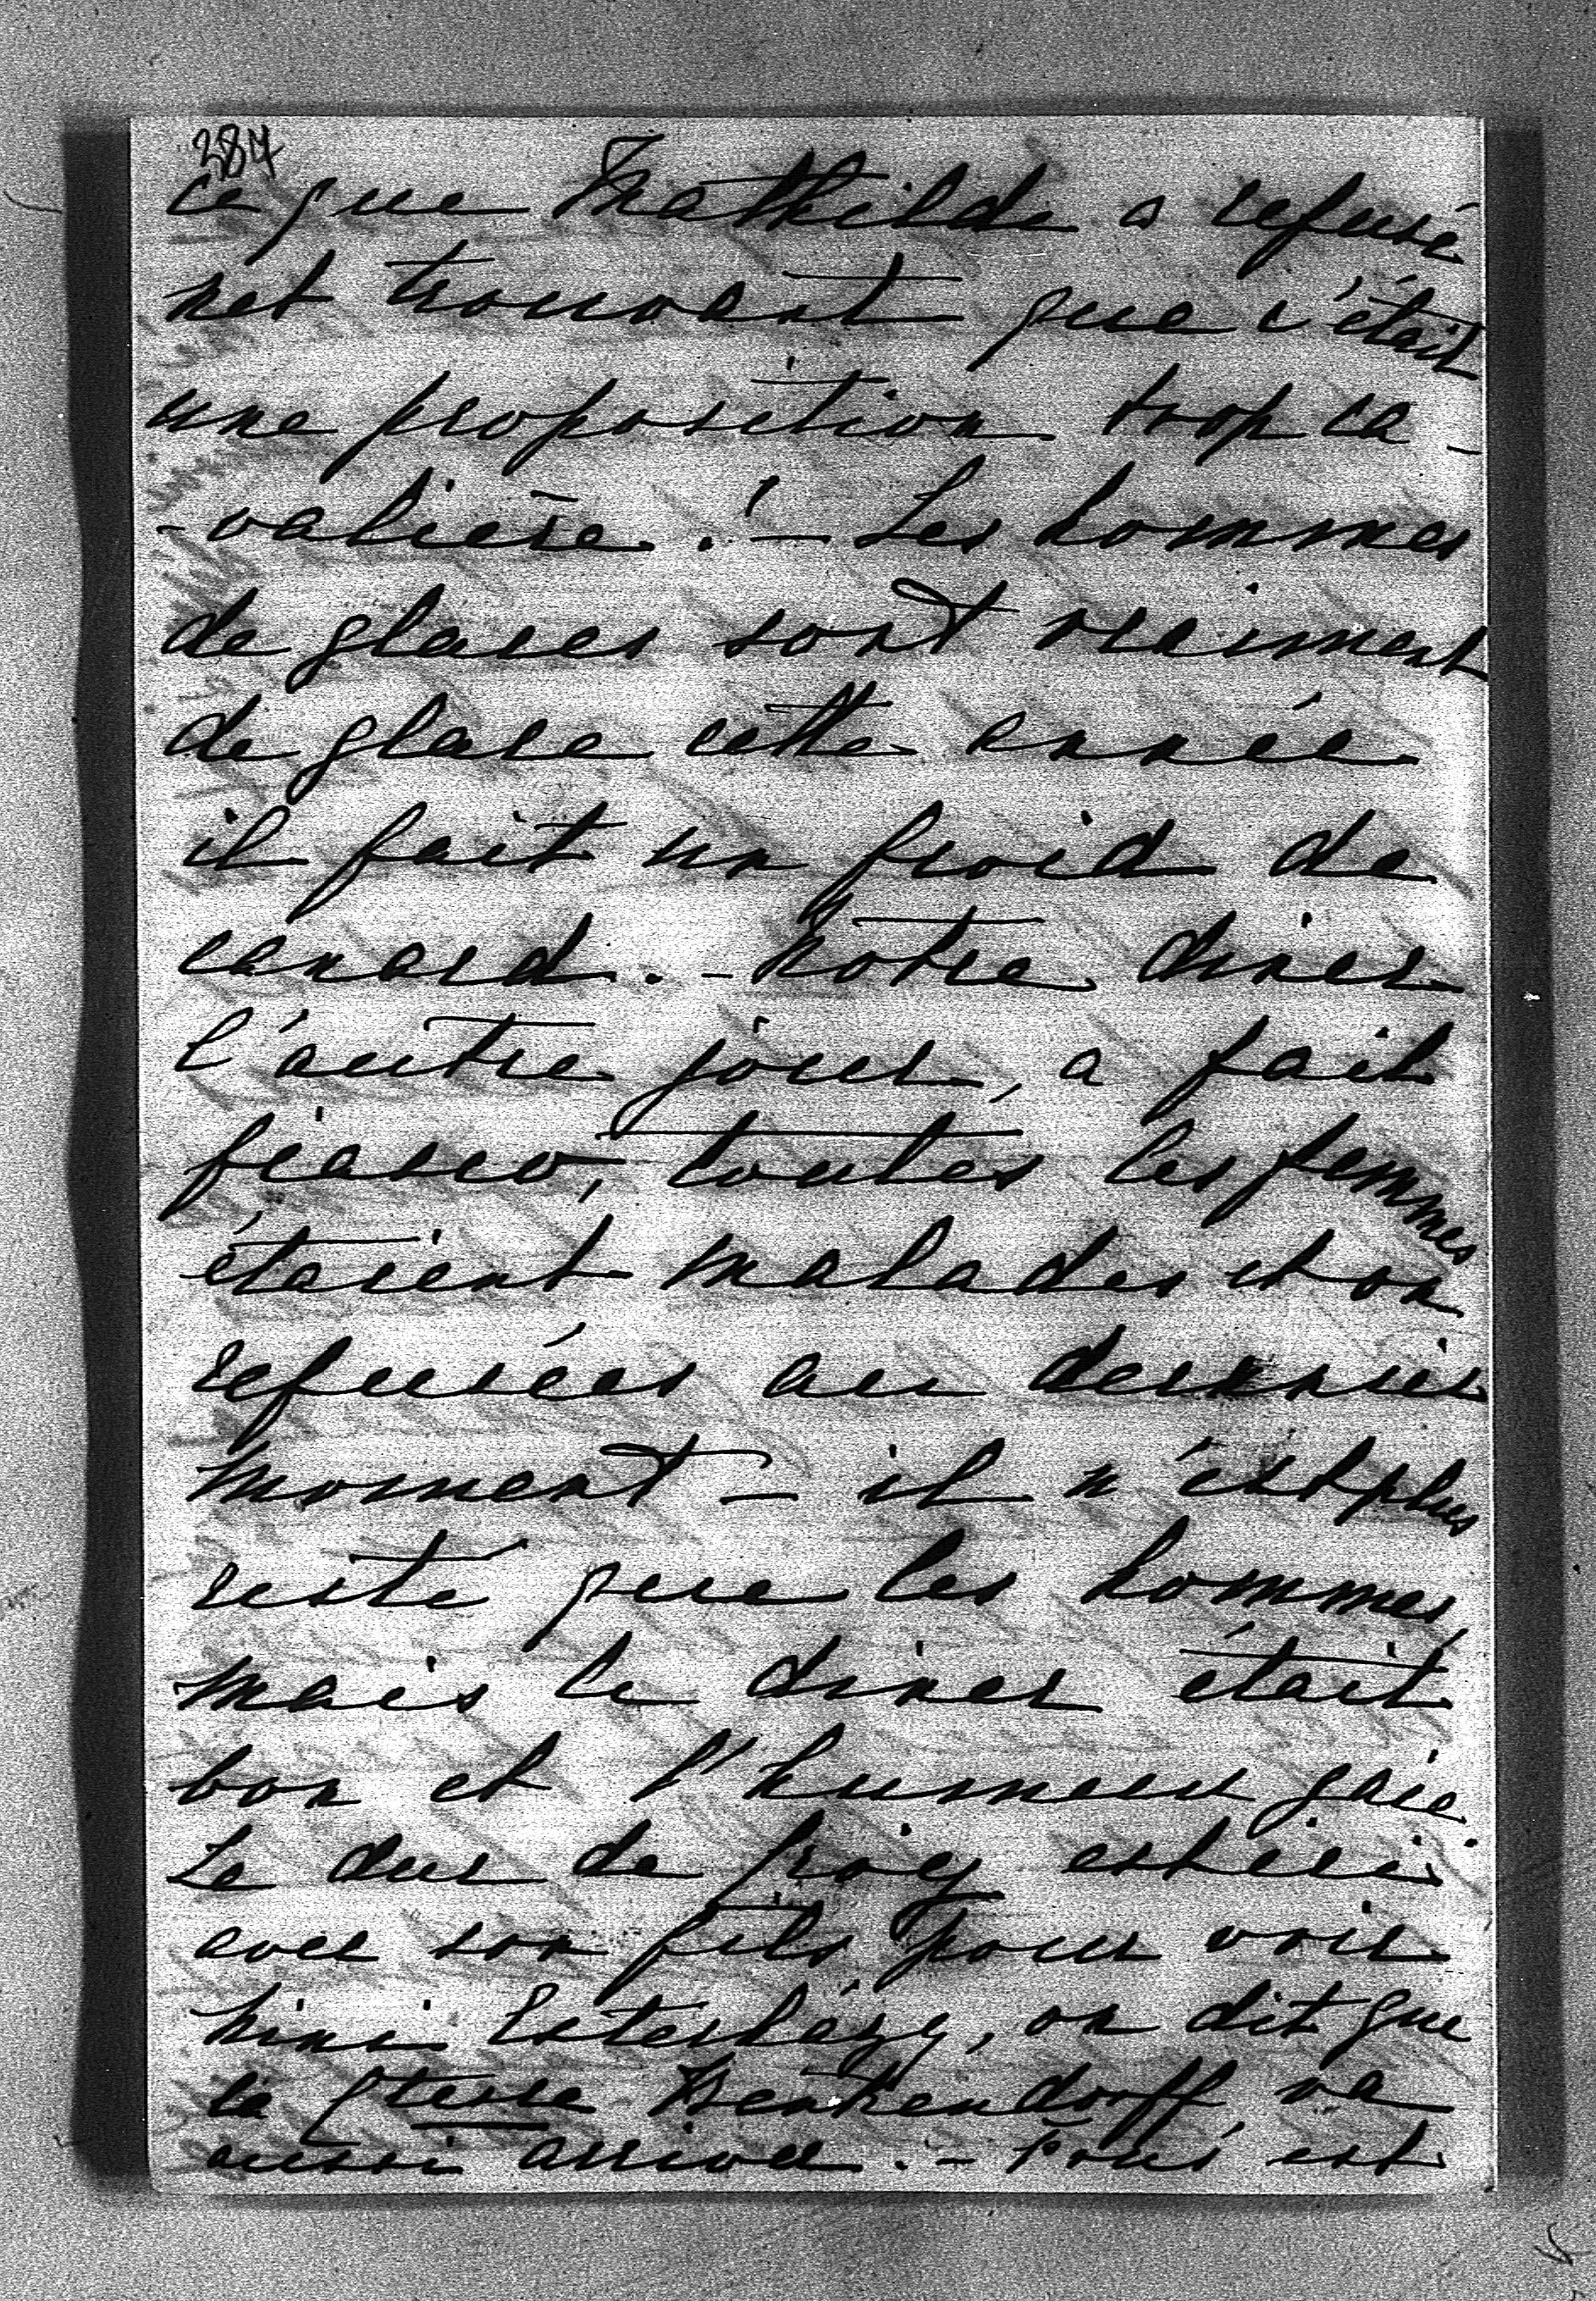 284
ce que Mathilde a refusé
net trouvant que c'était
une proposition trop ca-
-valière ! - Les hommes
de glaces sont vraiment
de glace cette année
il fait un froid de
canard. - Notre diner
l'autre jour, a fait
fiasco, toutes les femmes
étaient malades et on
refusées au dernier
moment - il n'est plus
resté que les hommes,
mais le diner était
bon et l'humeur gaie.
Le duc de Croÿ est ici
avec son fils pour voir
Nini Esterházy, on dit que
la Ctesse Benkendorff va
aussi arriver. - Tout est